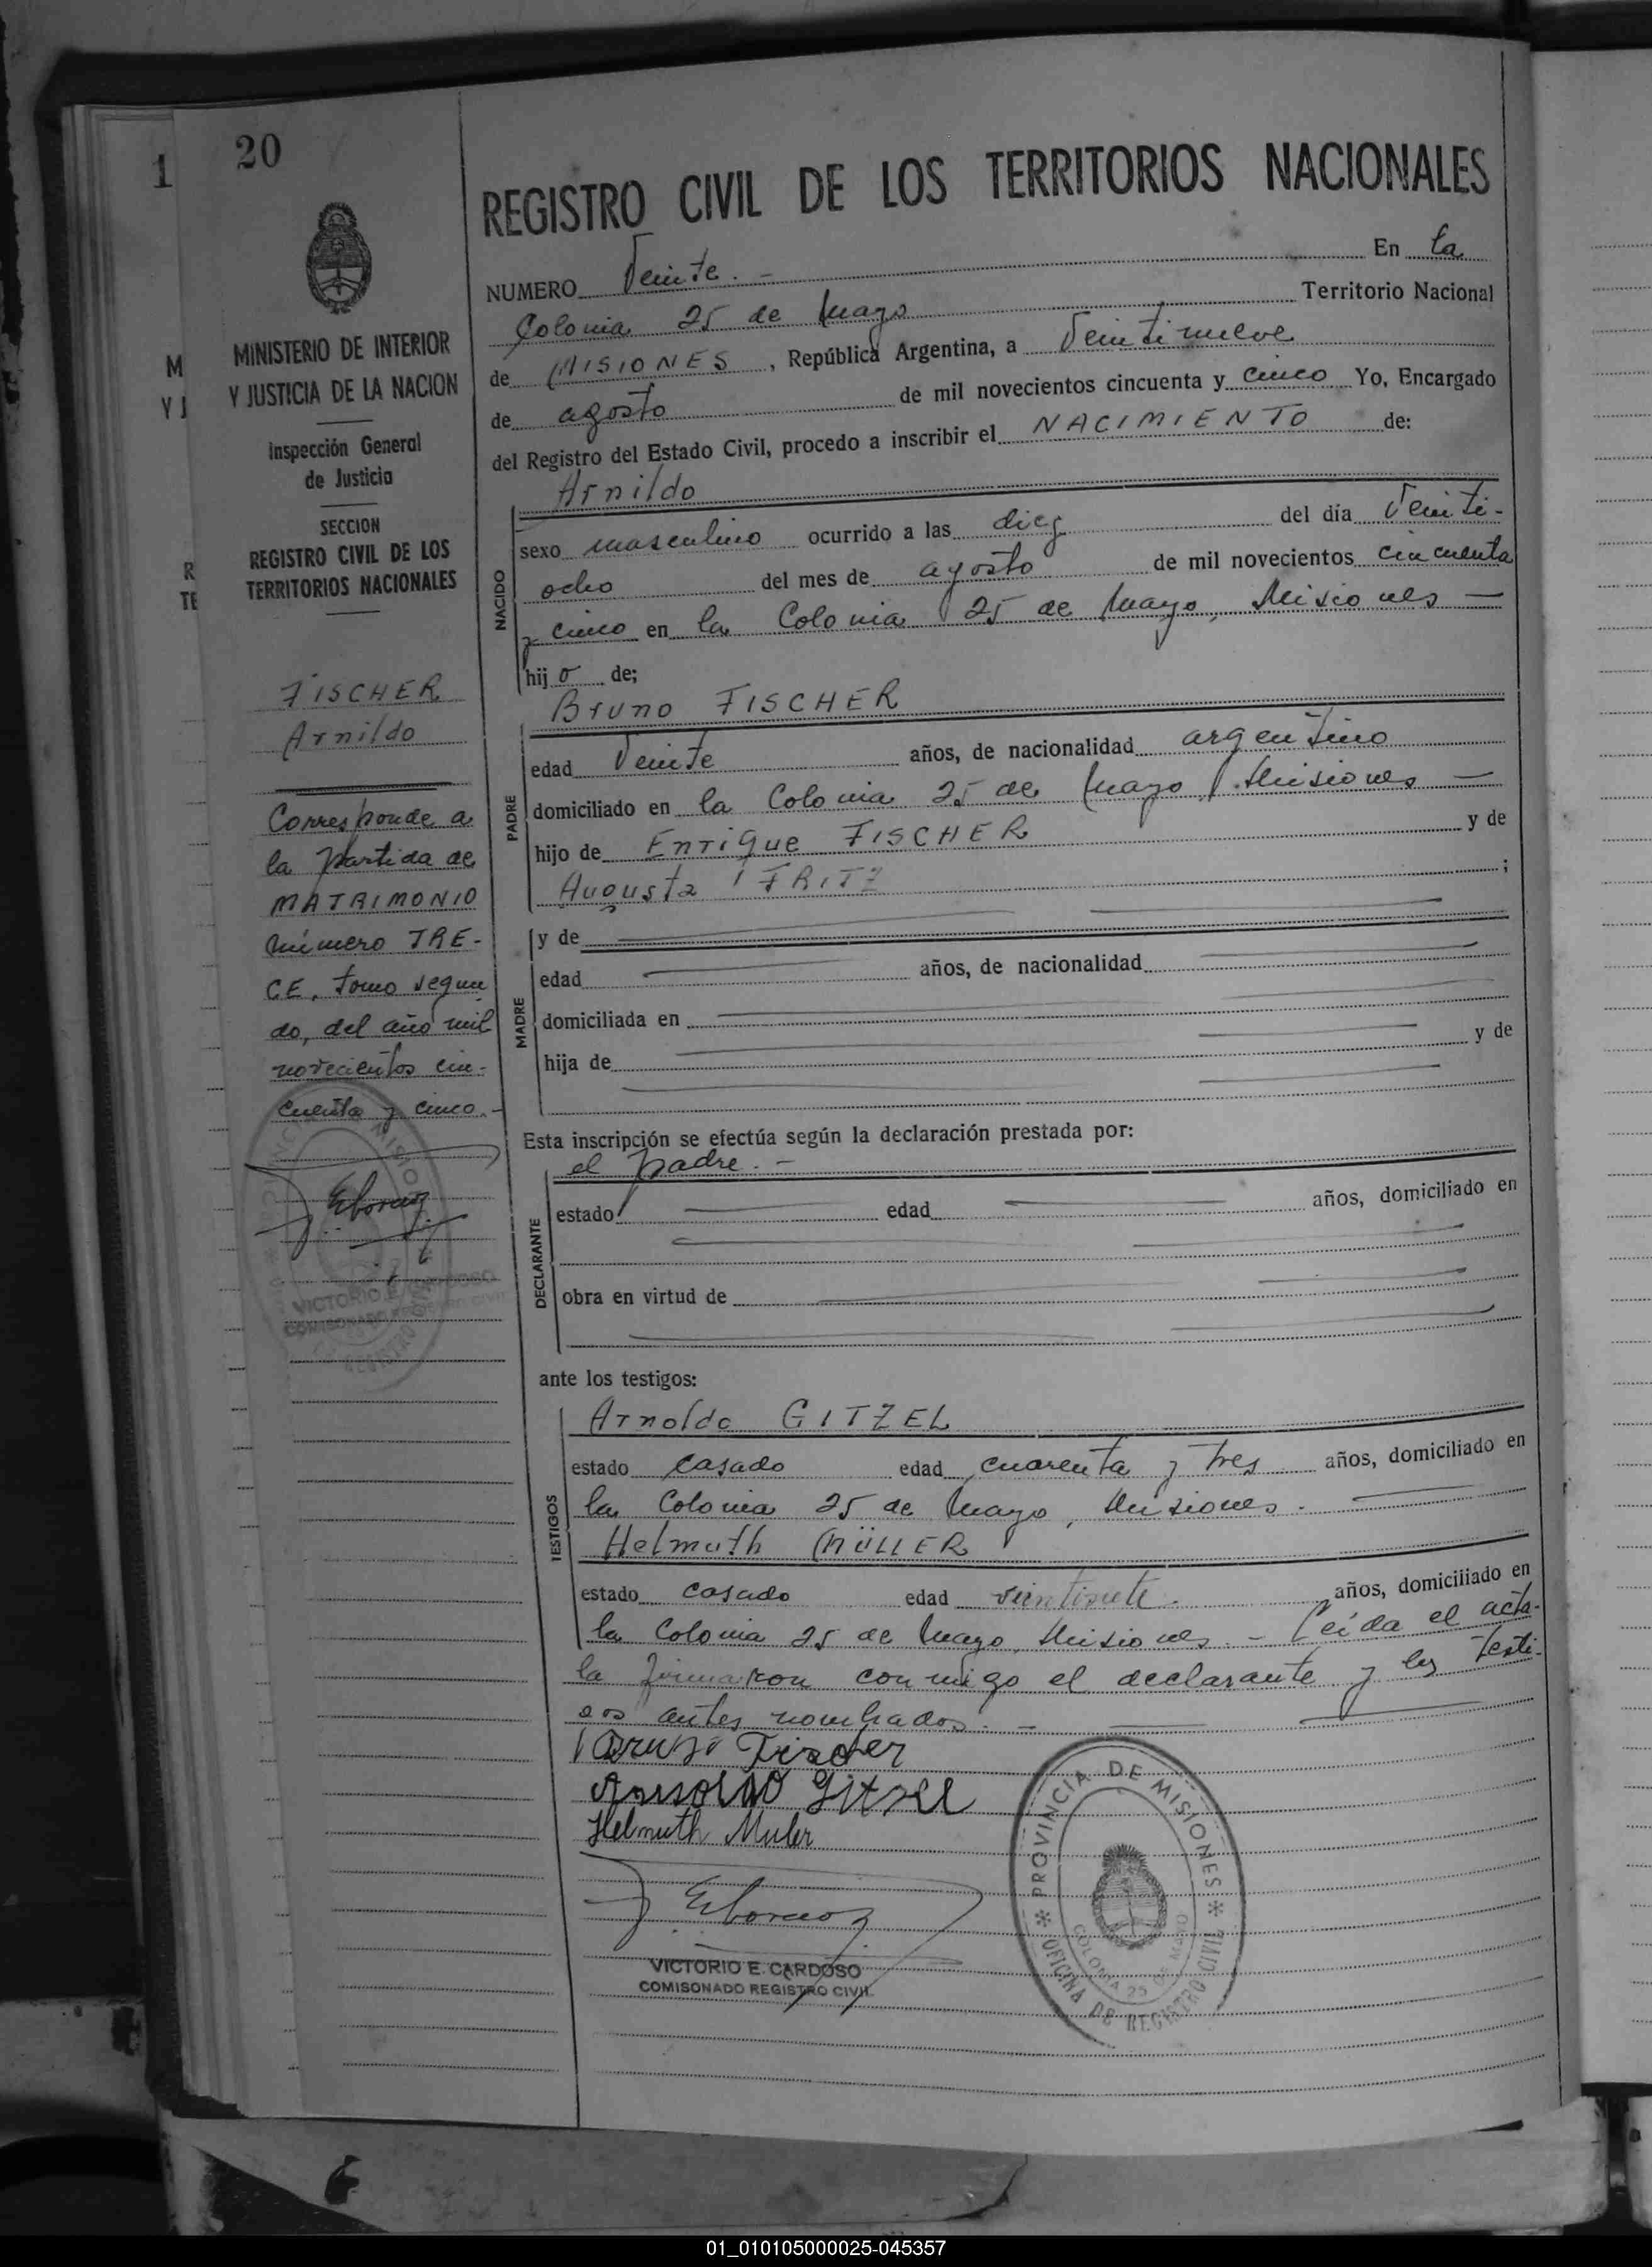 1
20
M
Y J
R
TE
MINISTERIO DE INTERIOR
Y JUSTICIA DE LA NACION
Inspección General
de Justicia
SECCION
REGISTRO CIVIL DE LOS
TERRITORIOS NACIONALES
FISCHER
Arnildo
Corresponde a
la partida de
MATRIMONIO
número TRE-
CE, tomo segun
do, del año mil
novecientos cin-
cuenta y cinco.-
VICTORIO E. CARDOSO
COMISONADO REGISTRO CIVIL
REGISTRO CIVIL DE LOS TERRITORIOS NACIONALES
NUMERO Veinte.- En la
Colonia 25 de Mayo Territorio Nacional
de MISIONES, República Argentina, a Veintinueve
de agosto de mil novecientos cincuenta y cinco Yo, Encargado
del Registro del Estado Civil, procedo a inscribir el NACIMIENTO de:
Arnildo
NACIDO
sexo masculino ocurrido a las diez del día Veinti-
ocho del mes de agosto de mil novecientos cincuenta
y cinco en la Colonia 25 de Mayo, Misiones —
hijo de;
Bruno FISCHER
PADRE
edad Veinte años, de nacionalidad argentino
domiciliado en la Colonia 25 de Mayo, Misiones —
hijo de Enrique FISCHER y de
Augusta FRITZ ;
MADRE
y de
edad años, de nacionalidad
domiciliada en
hija de y de
Esta inscripción se efectúa según la declaración prestada por:
el padre.-
DECLARANTE
estado edad años, domiciliado en
obra en virtud de
ante los testigos:
TESTIGOS
Arnoldo GITZEL
estado casado edad cuarenta y tres años, domiciliado en
la Colonia 25 de Mayo, Misiones.
Helmuth MÜLLER
estado casado edad veintisiete años, domiciliado en
la Colonia 25 de Mayo, Misiones.- Leída el acta-
la firmaron conmigo el declarante y los testi-
gos antes nombrados.-
Bruno Fischer
Arnoldo Gitzel
Helmuth Muler
VICTORIO E. CARDOSO
COMISONADO REGISTRO CIVIL
PROVINCIA DE MISIONES
COLONIA 25 DE MAYO
OFICINA DE REGISTRO CIVIL
01_010105000025-045357